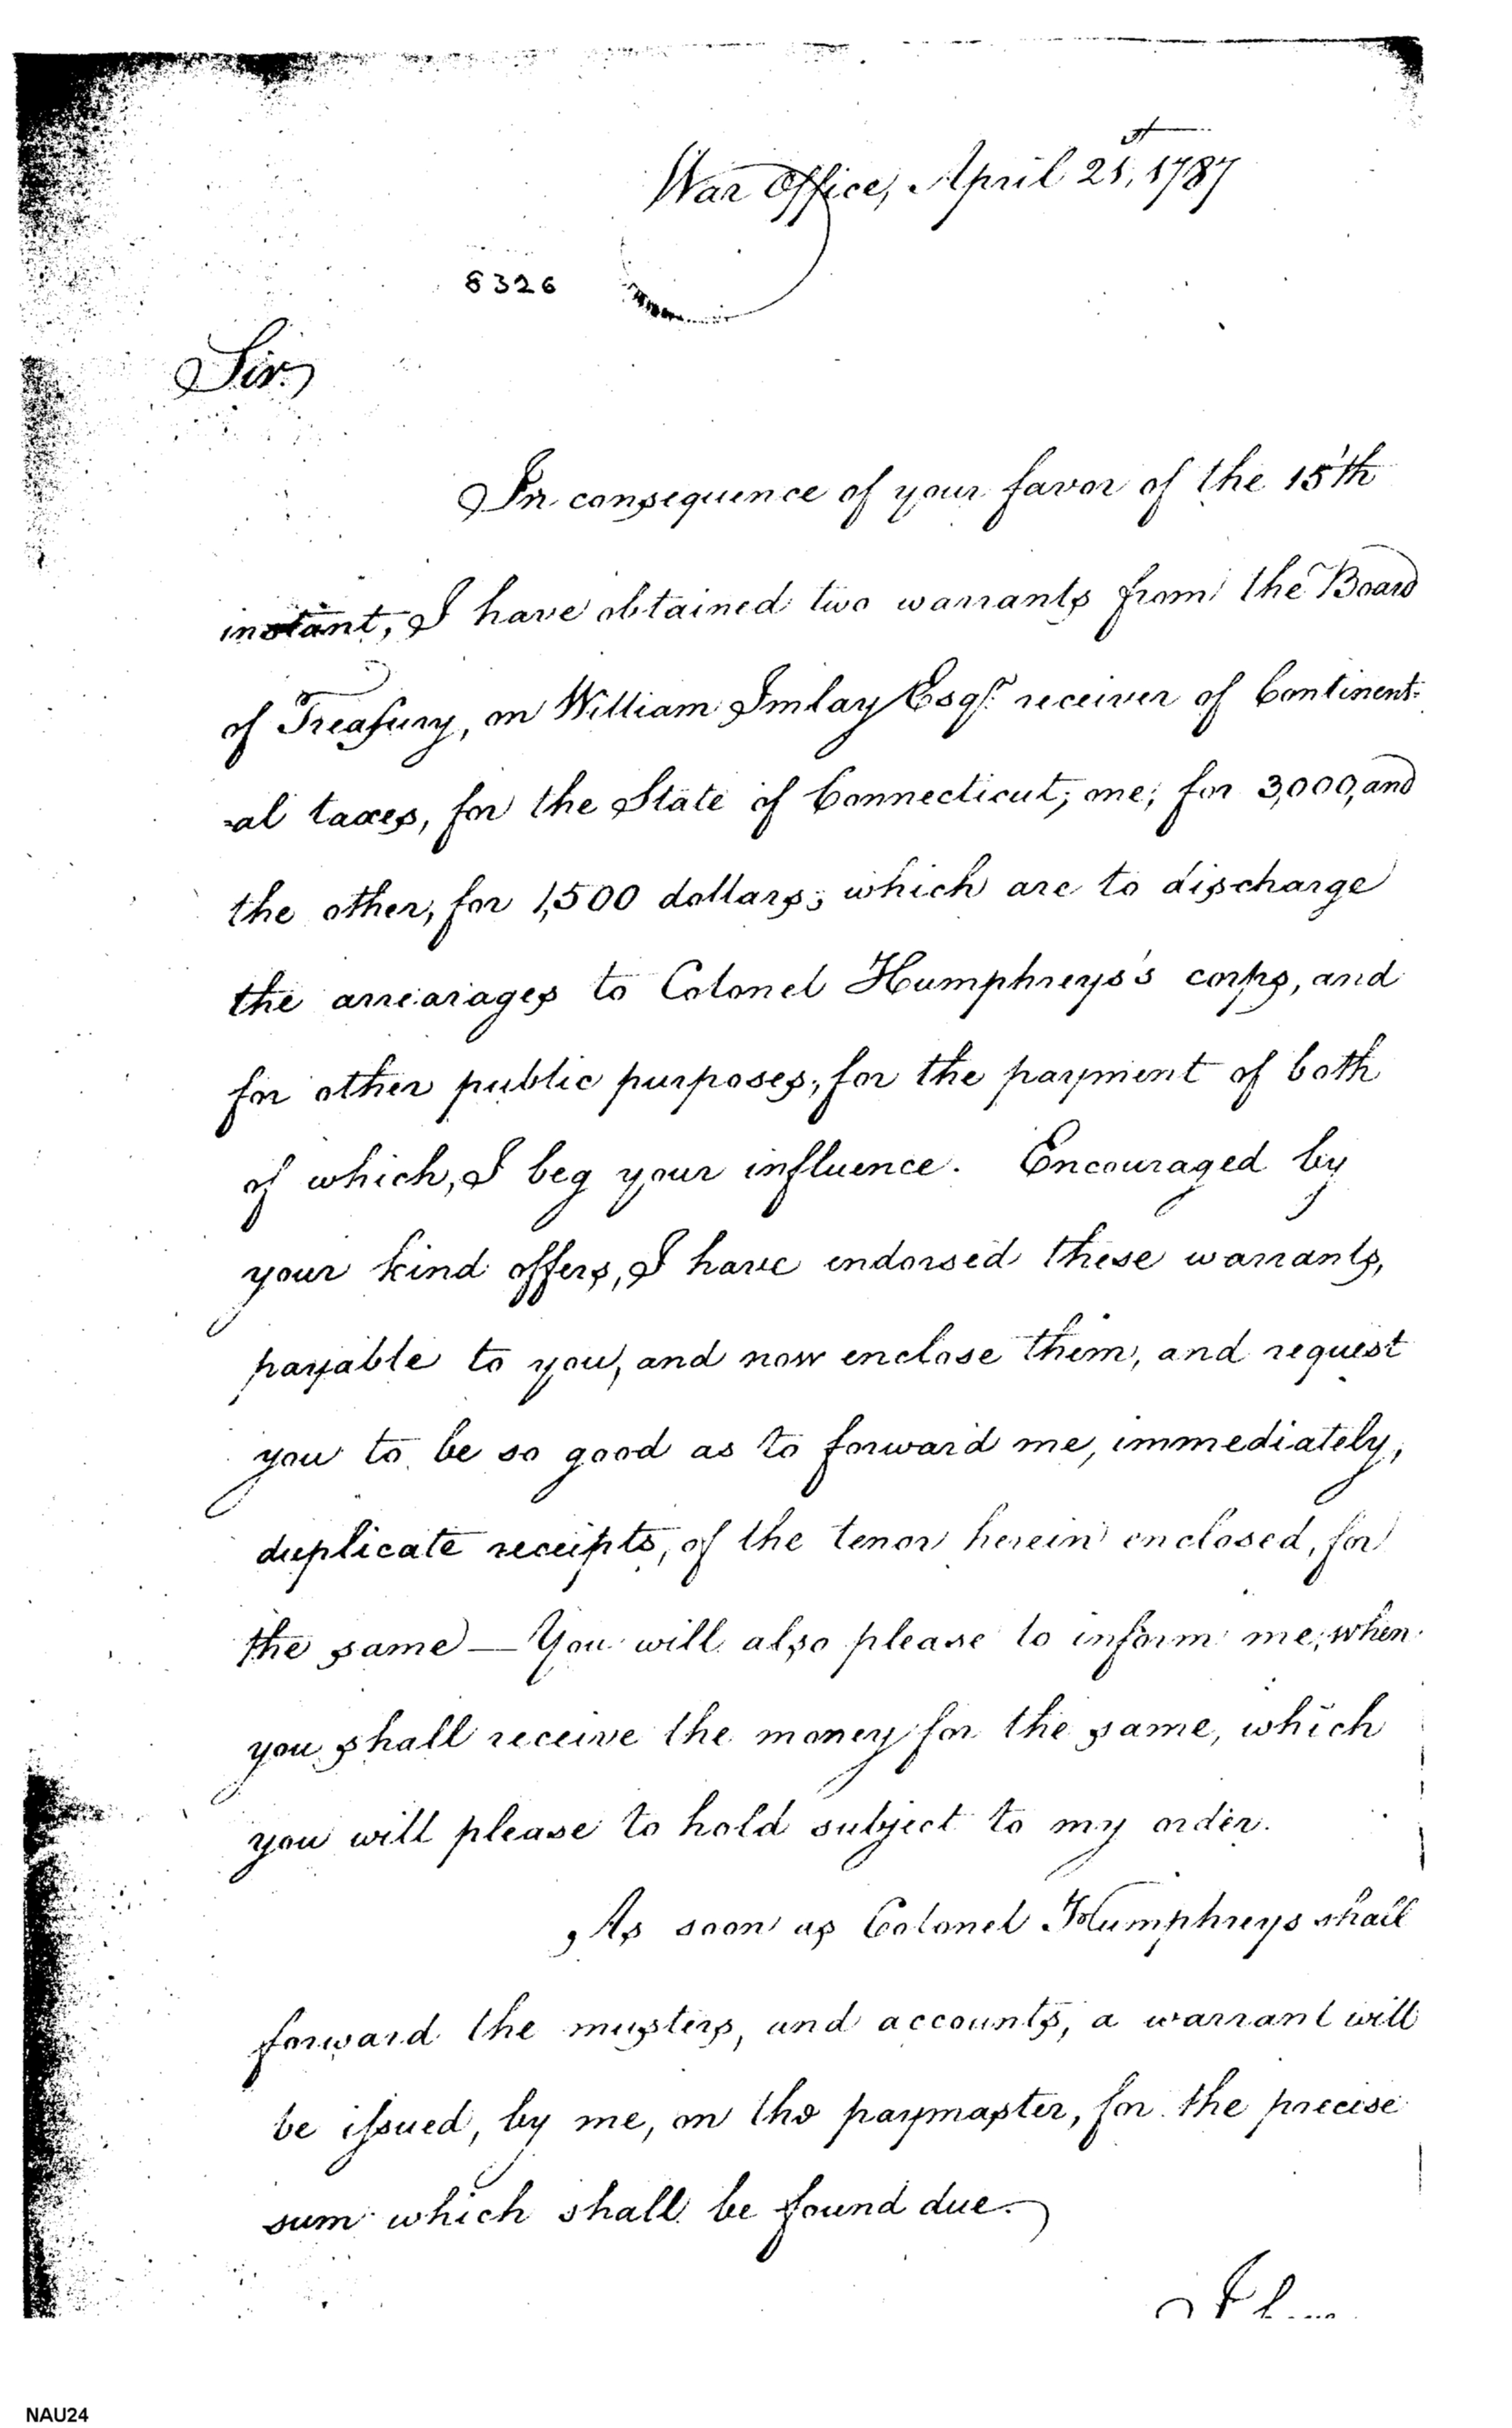 War Office, April 21,st 1787
8326
Sir.
In consequence of your favor of the 15'th
instant, I have obtained two warrants from the Board
of Treasury, on William Imlay Esqr. receiver of Continent-
-al taxes, for the State of Connecticut; one, for 3,000, and
the other, for 1,500 dollars; which are to discharge
the arrearages to Colonel Humphreys's corps, and
for other public purposes, for the payment of both
of which, I beg your influence. Encouraged by
your kind offers, I have endorsed these warrants,
payable to you, and now enclose them, and request
you to be so good as to forward me, immediately,
duplicate receipts, of the tenor herein enclosed, for
the same — You will also please to inform me, when
you shall receive the money for the same, which
you will please to hold subject to my order.
As soon as Colonel Humphreys shall
forward the musters, and accounts, a warrant will
be issued, by me, on the paymaster, for the precise
sum which shall be found due.
NAU24